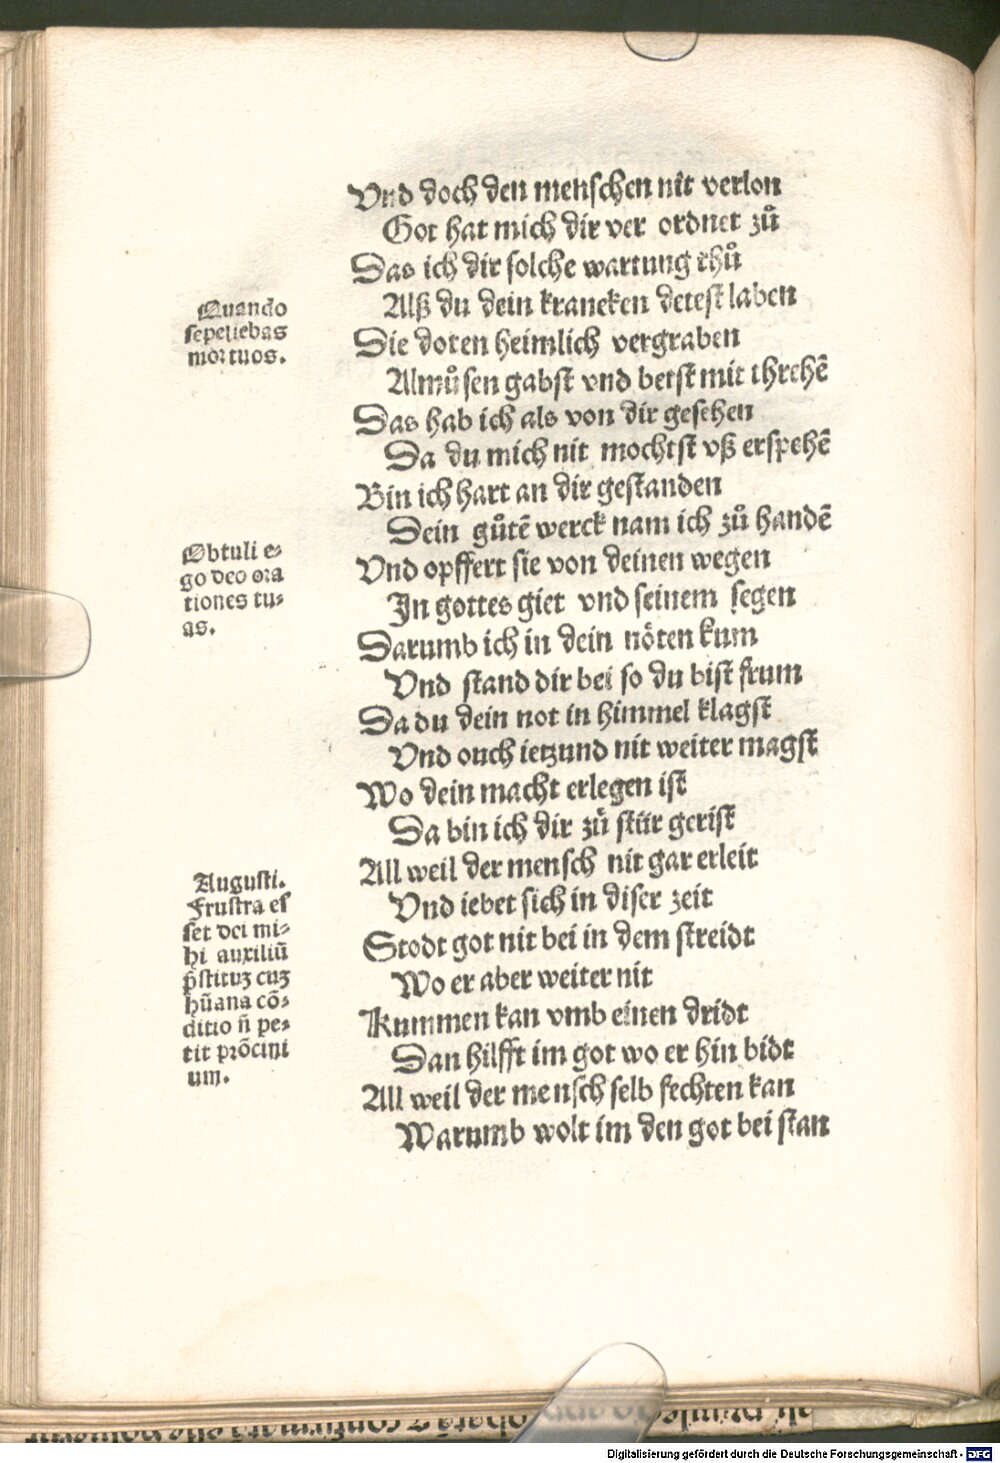 Vnd doch den menschen nit verlon
Got hat mich dir ver ordnet zů
Das ich dir solche wartung thů
Alß du dein krancken detest laben
Quando
sepeliebas
mortuos.
Die doten heimlich vergraben
Almůsen gabst vnd betst mit threhē
Das hab ich als von dir gesehen
Da du mich nit mochtst vß erspehē
Bin ich hart an dir gestanden
Dein gůtē werck nam ich zů handē
Obtuli e-
go deo ora
tiones tu-
as.
Vnd opffert sie von deinen wegen
In gottes giet vnd seinem segen
Darumb ich in dein nöten kum
Vnd stand dir bei so du bist frum
Da du dein not in himmel klagst
Vnd ouch ietzund nit weiter magst
Wo dein macht erlegen ist
Da bin ich dir zů stür gerist
All weil der mensch nit gar erleit
Vnd iebet sich in diser zeit
Augusti.
Frustra es
set dei mi-
hi auxiliū
p̄stituʒ cuʒ
hūana cō-
ditio n̄ pe-
tit prōcini
um.
Stodt got nit bei in dem streidt
Wo er aber weiter nit
Kummen kan vmb einen dridt
Dan hilfft im got wo er hin bidt
All weil der mensch selb fechten kan
Warumb wolt im den got bei stan
Digitalisierung gefördert durch die Deutsche Forschungsgemeinschaft - DFG